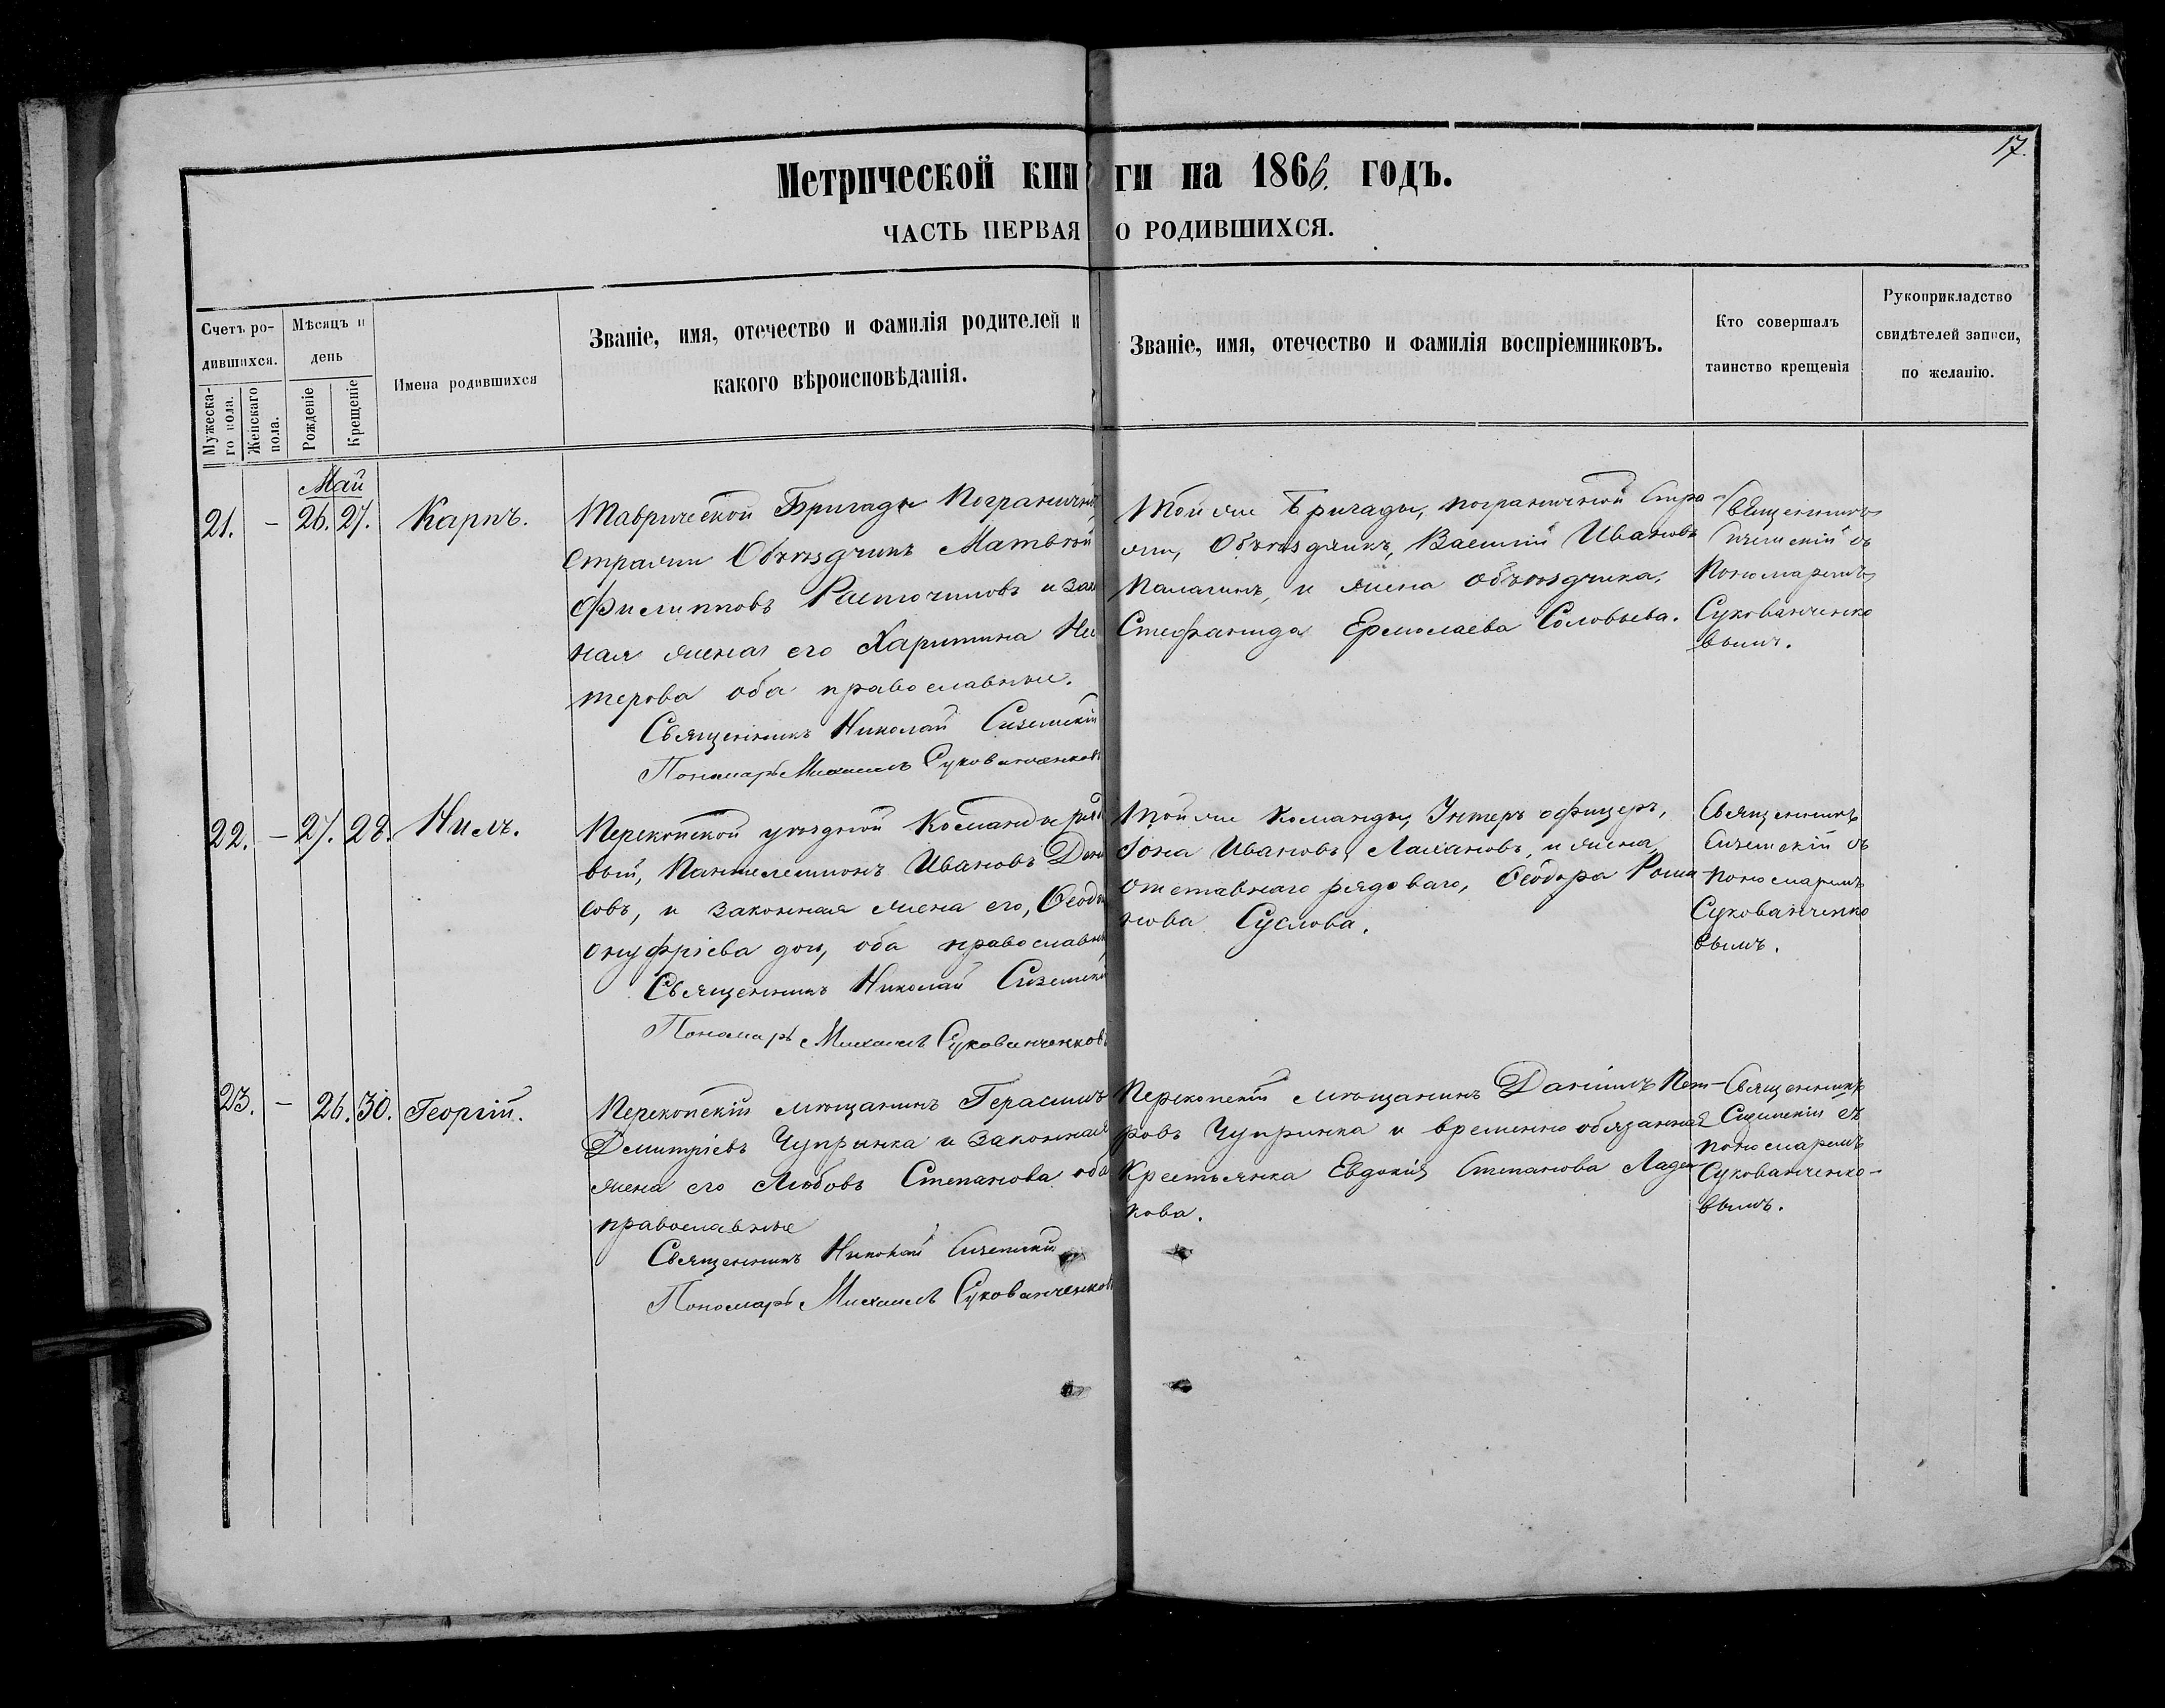 17.
Метрической книги на 1866. годъ.
ЧАСТЬ ПЕРВАЯ О РОДИВШИХСЯ.
Счетъ ро-
дившихся.
Мужеска-
го пола.
Женскаго
пола.
Мѣсяцъ и
день
Рожденіе
Крещеніе
Имена родившихся
Званіе, имя, отечество и фамилія родителей и
какого вѣроисповѣданія.
Званіе, имя, отечество и фамилія воспріемниковъ.
Кто совершалъ
таинство крещенія
Рукоприкладство
свидѣтелей записи,
по желанію.
Май
21. - 26. 27. Карпъ.
Таврической Бригады Пограничной
стражи Объѣздчикъ Матвѣй
Филипповъ и закон
ная жена его Харитина Не
терова оба православные.
Священникъ Николай
Пономарь Михаилъ Сукованченковъ
Той же Бригады, пограничной Стра-
жи, Объѣздчикъ, Василій Ивановъ
Палагинъ, и жена объѣздчика,
Стефанида Ермолаева Соловьева.
Священникъ
съ
Пономаремъ
Сукованченко
вымъ.
22. - 27. 28. Нилъ.
Перекопской уѣздной Команды рядо
вый, Пантелеимонъ Ивановъ Дени
совъ, и законная жена его,
Онуфріева дочь, оба православные
Священникъ Николай
Пономарь Михаилъ Сукованченковъ
Той же Команды, Унтеръ офицеръ,
Іона Ивановъ Лахановъ, и жена
отставнаго рядоваго, Ѳеодора Рома
нова Суслова.
Священникъ
съ
пономаремъ
Сукованченко
вымъ.
23. - 26. 30. Георгій.
Перекопскій мѣщанинъ Герасимъ
Дмитріевъ Чупринка и законная
жена его Любовь Степанова оба
православные
Священникъ Николай
Пономарь Михаилъ Сукованченковъ
Перекопскій мѣщанинъ Даніилъ Пет-
ровъ Чупринка и временно обязанная
Крестьянка Евдокія Степанова Ладен
кова.
Священникъ
съ
пономаремъ
Сукованченко-
вымъ.